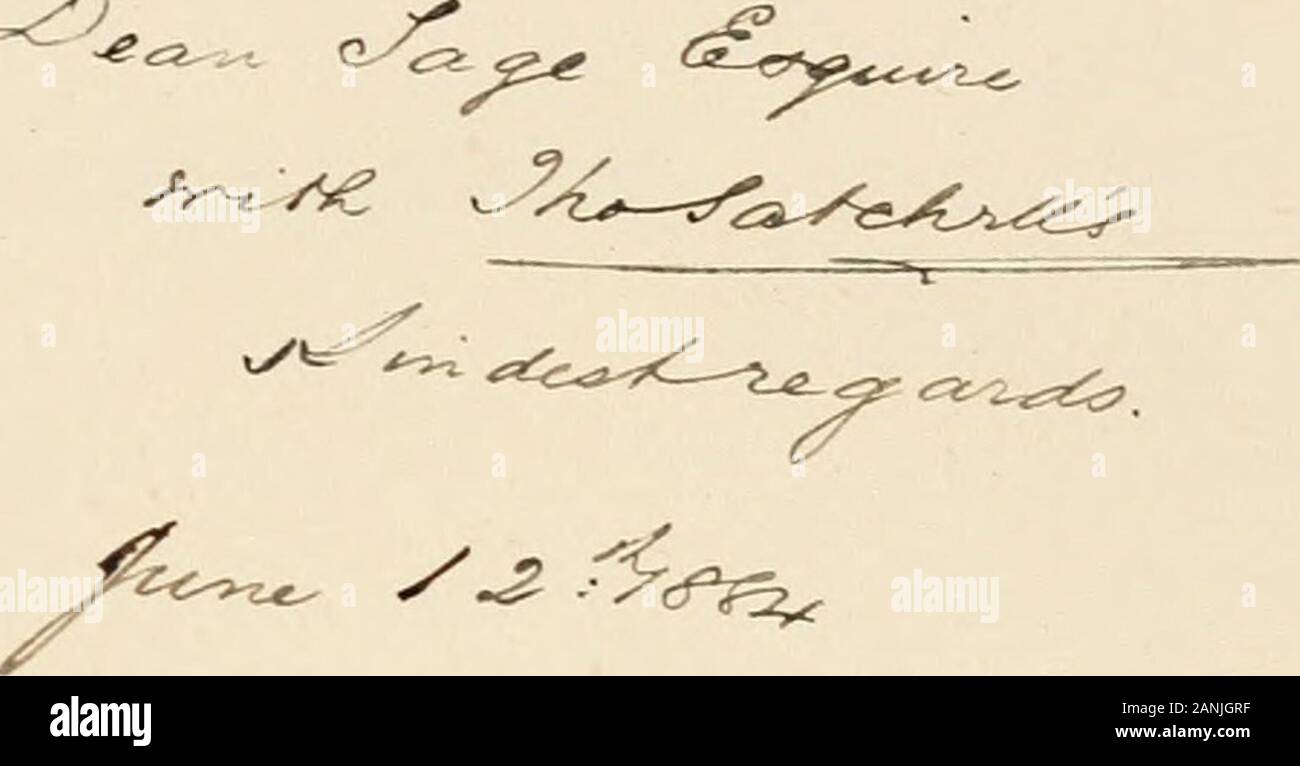 Dean Sage Esquire
with Thos Satchell's
Kindest regards.
June 12th 1884
a alamy
alamy
Image ID: 2ANJGRF
www.alamy.com